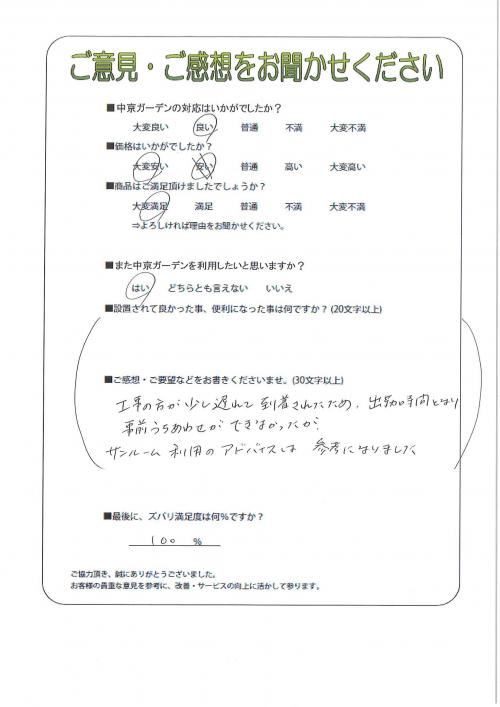 ご意見・ご感想をお聞かせください
■中京ガーデンの対応はいかがでしたか？
大変良い 良い 普通 不満 大変不満
■価格はいかがでしたか？
大変安い 安い 普通 高い 大変高い
■商品はご満足頂けましたでしょうか？
大変満足 満足 普通 不満 大変不満
⇒よろしければ理由をお聞かせください。
■また中京ガーデンを利用したいと思いますか？
はい どちらとも言えない いいえ
■設置されて良かった事、便利になった事は何ですか？(20文字以上)
■ご感想・ご要望などをお書きくださいませ。(30文字以上)
工事の方が少し遅れて到着されたため、出勤時間となり
事前うちあわせができなかったが、
サンルーム利用のアドバイスは 参考になりました
■最後に、ズバリ満足度は何％ですか？
100 %
ご協力頂き、誠にありがとうございました。
お客様の貴重な意見を参考に、改善・サービスの向上に活かして参ります。